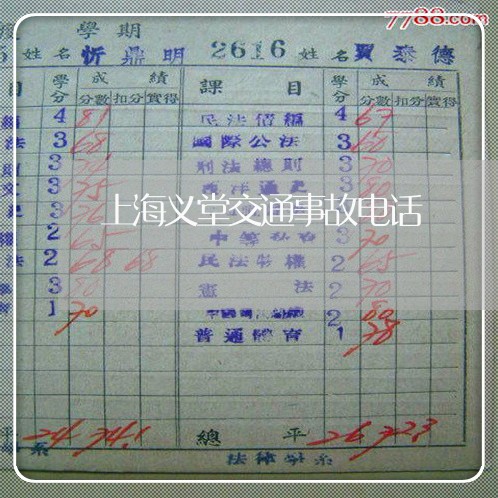 7788.com
學期
姓名 忻鼎明 2616 姓名 賈泰德
目 學分 成績 課目 學分 成績
分數 扣分 實得 分數 扣分 實得
4 81 民法債編 4 67
法 3 68 國際公法 3 60
3 刑法總則 3 70
3 75 3 80
3 76 3
權 2 65 3 70
法 2 68 68 民法物權 2 65
3 80 憲法 2 70
1 70 2 80
普通體育 1 78
上海义堂交通事故电话
平 24 74.1 總平 26 72.3
系 法律學系